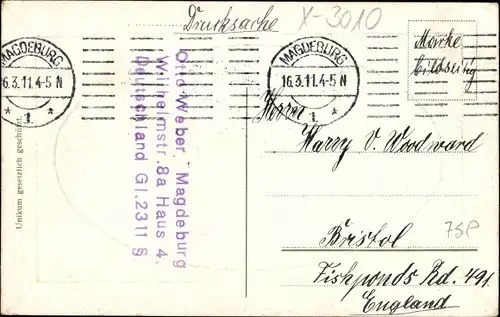 Drucksache
X-3010
MAGDEBURG
16.3.11.4-5 N
* 1. *
MAGDEBURG
16.3.11.4-5 N
* 1. *
Marke
bildseitig
Herrn
Harry V. Woodward
Bristol
Fishponds Rd. 491.
England
75P
Otto Weber, Magdeburg
Wilhelmstr. 8a Haus 4.
Deutschland Gl. 2311 §
Unikum gesetzlich geschützt.